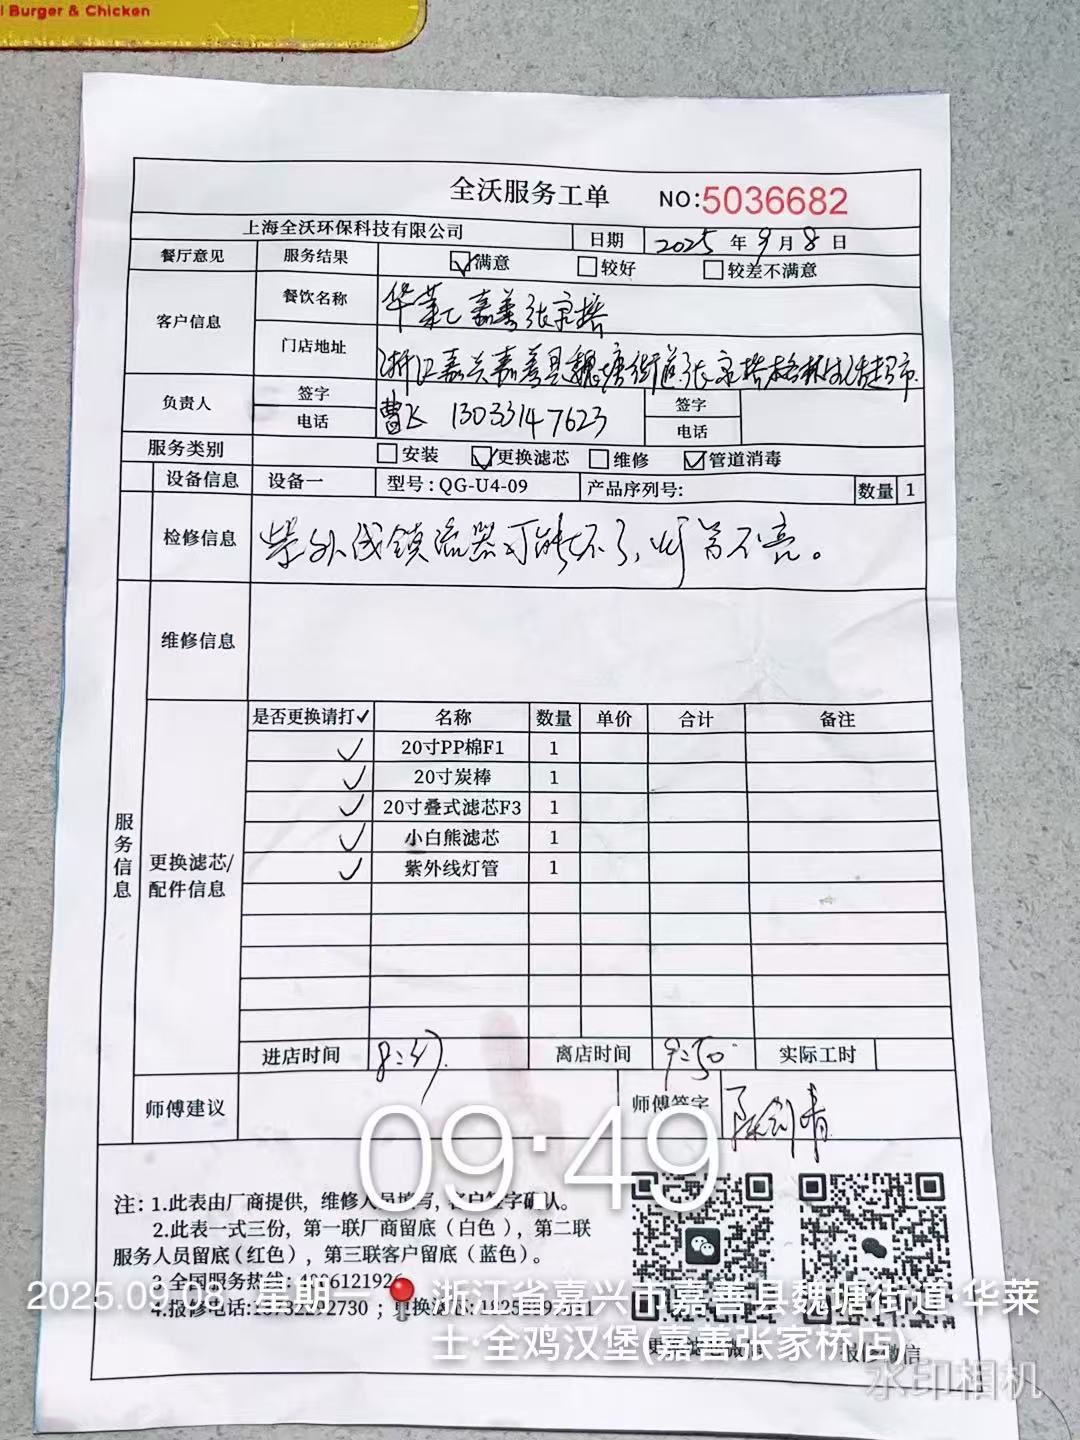 l Burger & Chicken
全沃服务工单 NO:5036682
上海全沃环保科技有限公司 日期 2025 年 9 月 8 日
餐厅意见 服务结果 满意 较好 较差不满意
客户信息 餐饮名称 华莱士嘉善张家桥
门店地址 浙江嘉兴嘉善县魏塘街道张家桥格林生活超市
负责人 签字 曹飞 13033147623 签字
电话 电话
服务类别 安装 更换滤芯 维修 管道消毒
设备信息 设备一 型号:QG-U4-09 产品序列号: 数量 1
检修信息 紫外线镇流器可能坏了,灯管不亮。
维修信息
服务信息
更换滤芯/配件信息
是否更换请打✓ 名称 数量 单价 合计 备注
✓ 20寸PP棉F1 1
✓ 20寸炭棒 1
✓ 20寸叠式滤芯F3 1
✓ 小白熊滤芯 1
✓ 紫外线灯管 1
进店时间 8:47 离店时间 9:50 实际工时
师傅建议 师傅签字
09:49
注:1.此表由厂商提供,维修人员填写,客户签字确认。
2.此表一式三份,第一联厂商留底(白色),第二联
服务人员留底(红色),第三联客户留底(蓝色)。
3.全国服务热线:
4.报修电话: ;更换滤芯:
2025.09.08 星期一 浙江省嘉兴市嘉善县魏塘街道·华莱
士·全鸡汉堡(嘉善张家桥店)
报修微信
水印相机